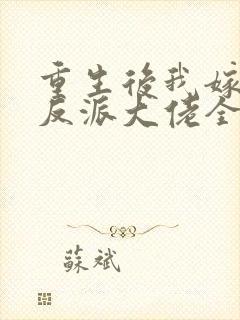 重生後我嫁
反派大佬全
蘇斌